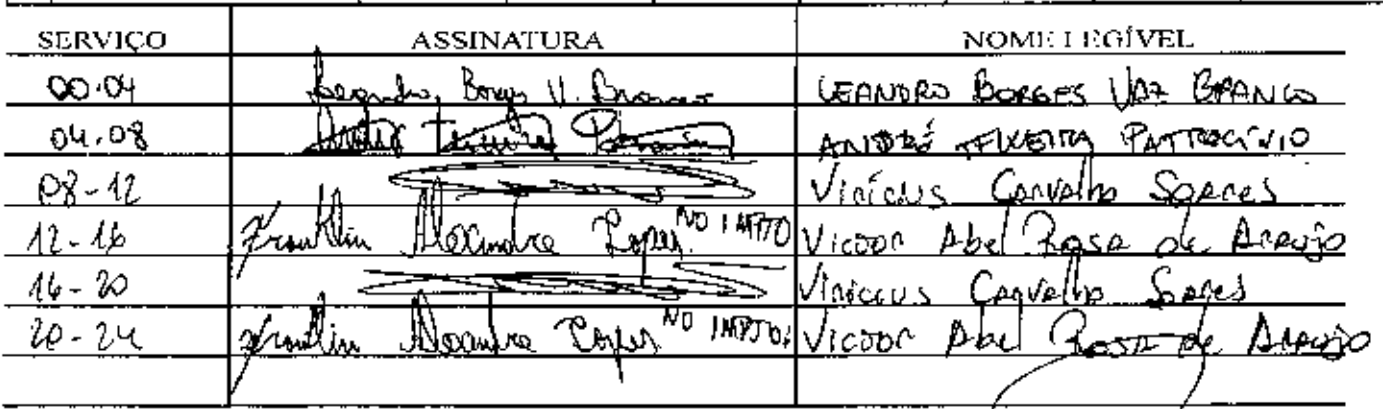 SERVIÇO ASSINATURA NOME LEGÍVEL
00-04 Leandro Borges V. Branco LEANDRO BORGES VAZ BRANCO
04-08 André Teixeira ANDRÉ TEIXEIRA PATROCÍNIO
08-12 Vinícius Carvalho Soares
12-16 Franklin Alexandre Lopes. NO IMPTO Victor Abel Rosa de Araujo
16-20 Vinícius Carvalho Soares
20-24 Franklin Alexandre Lopes NO IMPTO: Victor Abel Rosa de Araujo